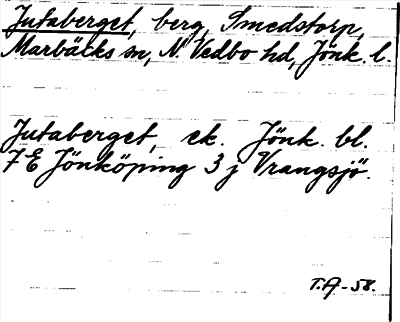 Jutaberget, berg, Smedstorp,
Marbäcks sn, N. Vedbo hd, Jönk. l.
Jutaberget, ek. Jönk. bl.
7 E Jönköping 3 j Vrangsjö.
T.A-58.